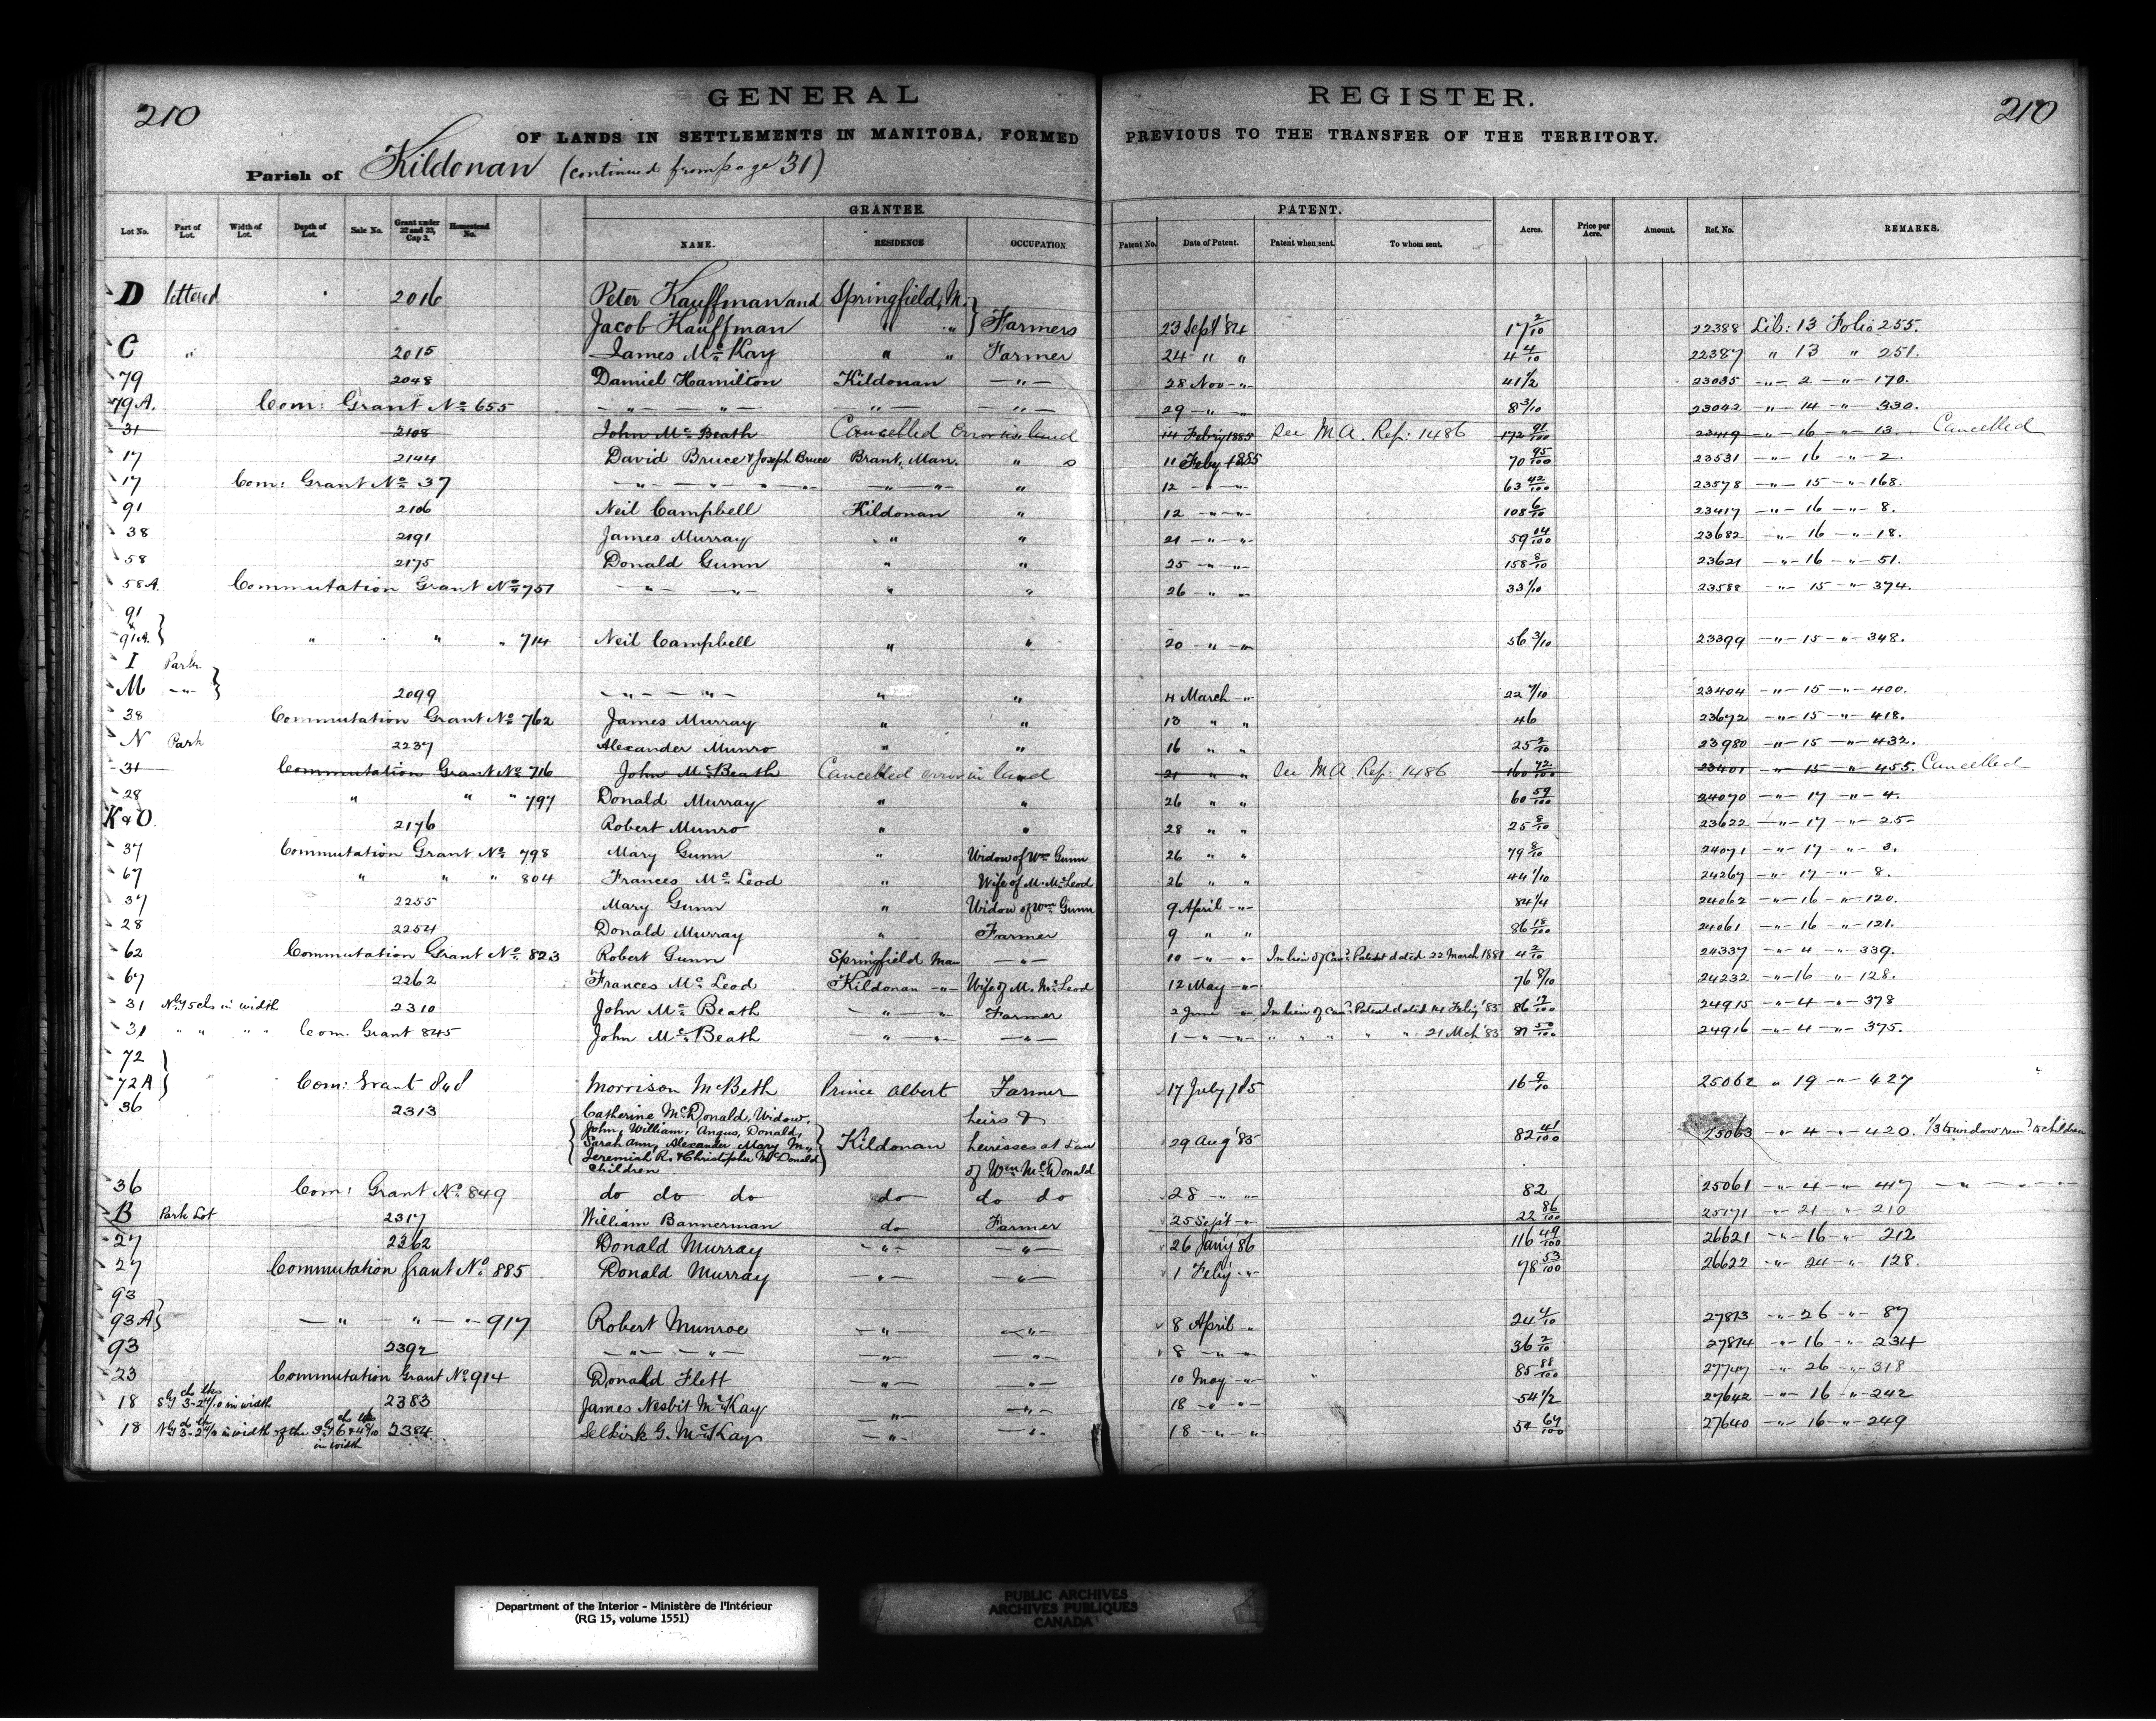 210 GENERAL REGISTER. 210
OF LANDS IN SETTLEMENTS IN MANITOBA, FORMED PREVIOUS TO THE TRANSFER OF THE TERRITORY.
Parish of Kildonan (continued from page 31)
GRANTEE. PATENT.
Lot No. Part of Lot. Width of Lot. Depth of Lot. Sale No. Grant under 32 and 33, Cap 3. Homestead No. NAME. RESIDENCE OCCUPATION Patent No. Date of Patent. Patent when sent. To whom sent. Acres. Price per Acre. Amount. Ref. No. REMARKS.
D lettered 2016 Peter Kauffman and Springfield, M.
Jacob Kauffman " " } Farmers 23 Sept '84 17 2/10 22388 Lib: 13 Folio 255.
C " 2015 James Mc Kay " " Farmer 24 " " 4 4/10 22387 " 13 " 251.
79 2048 Damiel Hamilton Kildonan —"— 28 Nov —"— 41 1/2 23035 —"— 2 —"— 170.
79A. Com: Grant No 655 —"— —"— —"— —"— 29 —"— —"— 8 3/10 23042 —"— 14 —"— 330.
31 2108 John Mc Beath Cancelled Error in land 14 Feb'y 1885 See M A. Ref: 1486 172 91/100 23419 —"— 16 —"— 13. Cancelled
17 2144 David Bruce & Joseph Bruce Brant, Man. " s 11 Feby 1885 70 95/100 23531 —"— 16 —"— 2.
17 Com: Grant No 37 —"— —"— —"— —"— " 12 —"— —"— 63 42/100 23578 —"— 15 —"— 168.
91 2106 Neil Campbell Kildonan " 12 —"—"— 108 6/10 23417 —"— 16 —"— 8.
38 2191 James Murray " " 21 —"— —"— 59 04/100 23682 —"— 16 —"— 18.
58 2175 Donald Gunn " " 25 —"— —"— 158 8/10 23621 —"— 16 —"— 51.
58A. Commutation Grant No 751 —"— —"— " " 26 —"— —"— 33 1/10 23588 —"— 15 —"— 374.
91
& 91A. } " " " 714 Neil Campbell " " 20 —"— —"— 56 3/10 23399 —"— 15 —"— 348.
I Park
M —"— } 2099 —"— —"— " " 4 March —"— 22 7/10 23404 —"— 15 —"— 400.
38 Commutation Grant No 762 James Murray " " 13 " " 46 23672 —"— 15 —"— 418.
N Park 2237 Alexander Munro " " 16 " " 25 2/10 23980 —"— 15 —"— 432.
31 Commutation Grant No 716 John Mc Beath Cancelled error in land 21 " " See M A. Ref: 1486 160 72/100 23401 —"— 15 —"— 455. Cancelled
28 " " " 797 Donald Murray " " 26 " " 60 59/100 24070 —"— 17 —"— 4.
K & O. 2176 Robert Munro " " 28 " " 25 8/10 23622 —"— 17 —"— 25
37 Commutation Grant No 798 Mary Gunn " Widow of Wm Gunn 26 " " 79 8/10 24071 —"— 17 —"— 3.
67 " " " 804 Frances Mc Leod " Wife of M. Mc Leod 26 " " 44 1/10 24267 —"— 17 —"— 8.
37 2255 Mary Gunn " Widow of Wm Gunn 9 April —"— 84 1/4 24062 —"— 16 —"— 120.
28 2254 Donald Murray " Farmer 9 " " 86 18/100 24061 —"— 16 —"— 121.
62 Commutation Grant No 823 Robert Gunn Springfield Man —"— 10 —"— —"— In lieu of Canc'd Patent dated 22 March 1881 4 2/10 24337 —"— 4 —"— 339.
67 2262 Frances Mc Leod Kildonan —"— Wife of M. McLeod 12 May —"— 76 8/10 24232 —"— 16 —"— 128.
31 Nly 5 chs in width 2310 John Mc Beath —"— —"— Farmer 2 June —"— In lieu of Canc'd Patent dated 14 Feby '85 86 17/100 24915 —"— 4 —"— 378
31 " " " " Com. Grant 845 John Mc Beath —"— —"— —"— 1 —"— —"— " " " " " 21 Mch '85 81 50/100 24916 —"— 4 —"— 375.
72 }
72A } Com: Grant 848 Morrison McBeth Prince Albert Farmer 17 July /85 16 9/10 25062 " 19 —"— 427
36 2313 Catherine McDonald, Widow, heirs &
John, William, Angus, Donald,
Sarah Ann, Alexander Mary M., Kildonan heiresses at Law 29 Aug '85 82 41/100 25063 —"— 4 —"— 420. 1/3 to widow rem'd to children
Jeremiah R. & Christopher McDonald
Children. of Wm McDonald
36 Com: Grant No 849 do do do do do do 28 —"— —"— 82 25061 —"— 4 —"— 417 —"— —"—
B Park Lot 2317 William Bannerman do Farmer 25 Sept —"— 22 86/100 25171 —"— 21 —"— 210
27 2362 Donald Murray —"— —"— 26 Jan'y 86 116 49/100 26621 —"— 16 —"— 212
27 Commutation Grant No 885 Donald Murray —"— —"— 1 Feby —"— 78 53/100 26622 —"— 24 —"— 128.
93
93A } —"— —"— —"— 917 Robert Munroe —"— —"— 8 April —"— 24 4/10 27813 —"— 26 —"— 87
93 2392 —"— —"— —"— —"— 8 —"— —"— 36 2/10 27814 —"— 16 —"— 234
23 Commutation Grant No 914 Donald Flett —"— —"— 10 May —"— 85 88/100 27747 —"— 26 —"— 318
18 Sly 3-24/10 in width 2383 James Nesbit McKay —"— —"— 18 —"— —"— 54 1/2 27642 —"— 16 —"— 242
18 Nly 3-24/10 in width of the Sly 6 in width 2384 Selkirk G. McKay —"— —"— 18 —"— —"— 54 64/100 27640 —"— 16 —"— 249
Department of the Interior - Ministère de l'Intérieur
(RG 15, volume 1551)
PUBLIC ARCHIVES
ARCHIVES PUBLIQUES
CANADA